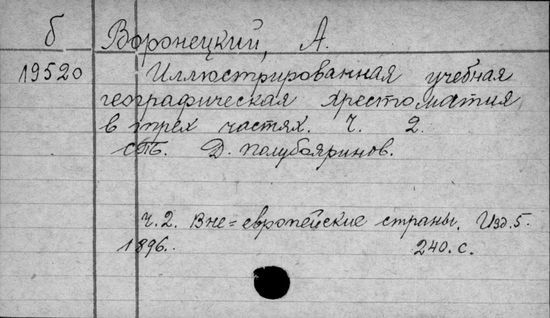 б Воронецкий, А.
19520 Иллюстрированная учебная
географическая хрестоматия
в трех частях. Ч. 2.
СПб. Д. Полубояринов.
Ч. 2. Вне=европейские страны. Изд. 5.
1896. 240. с.